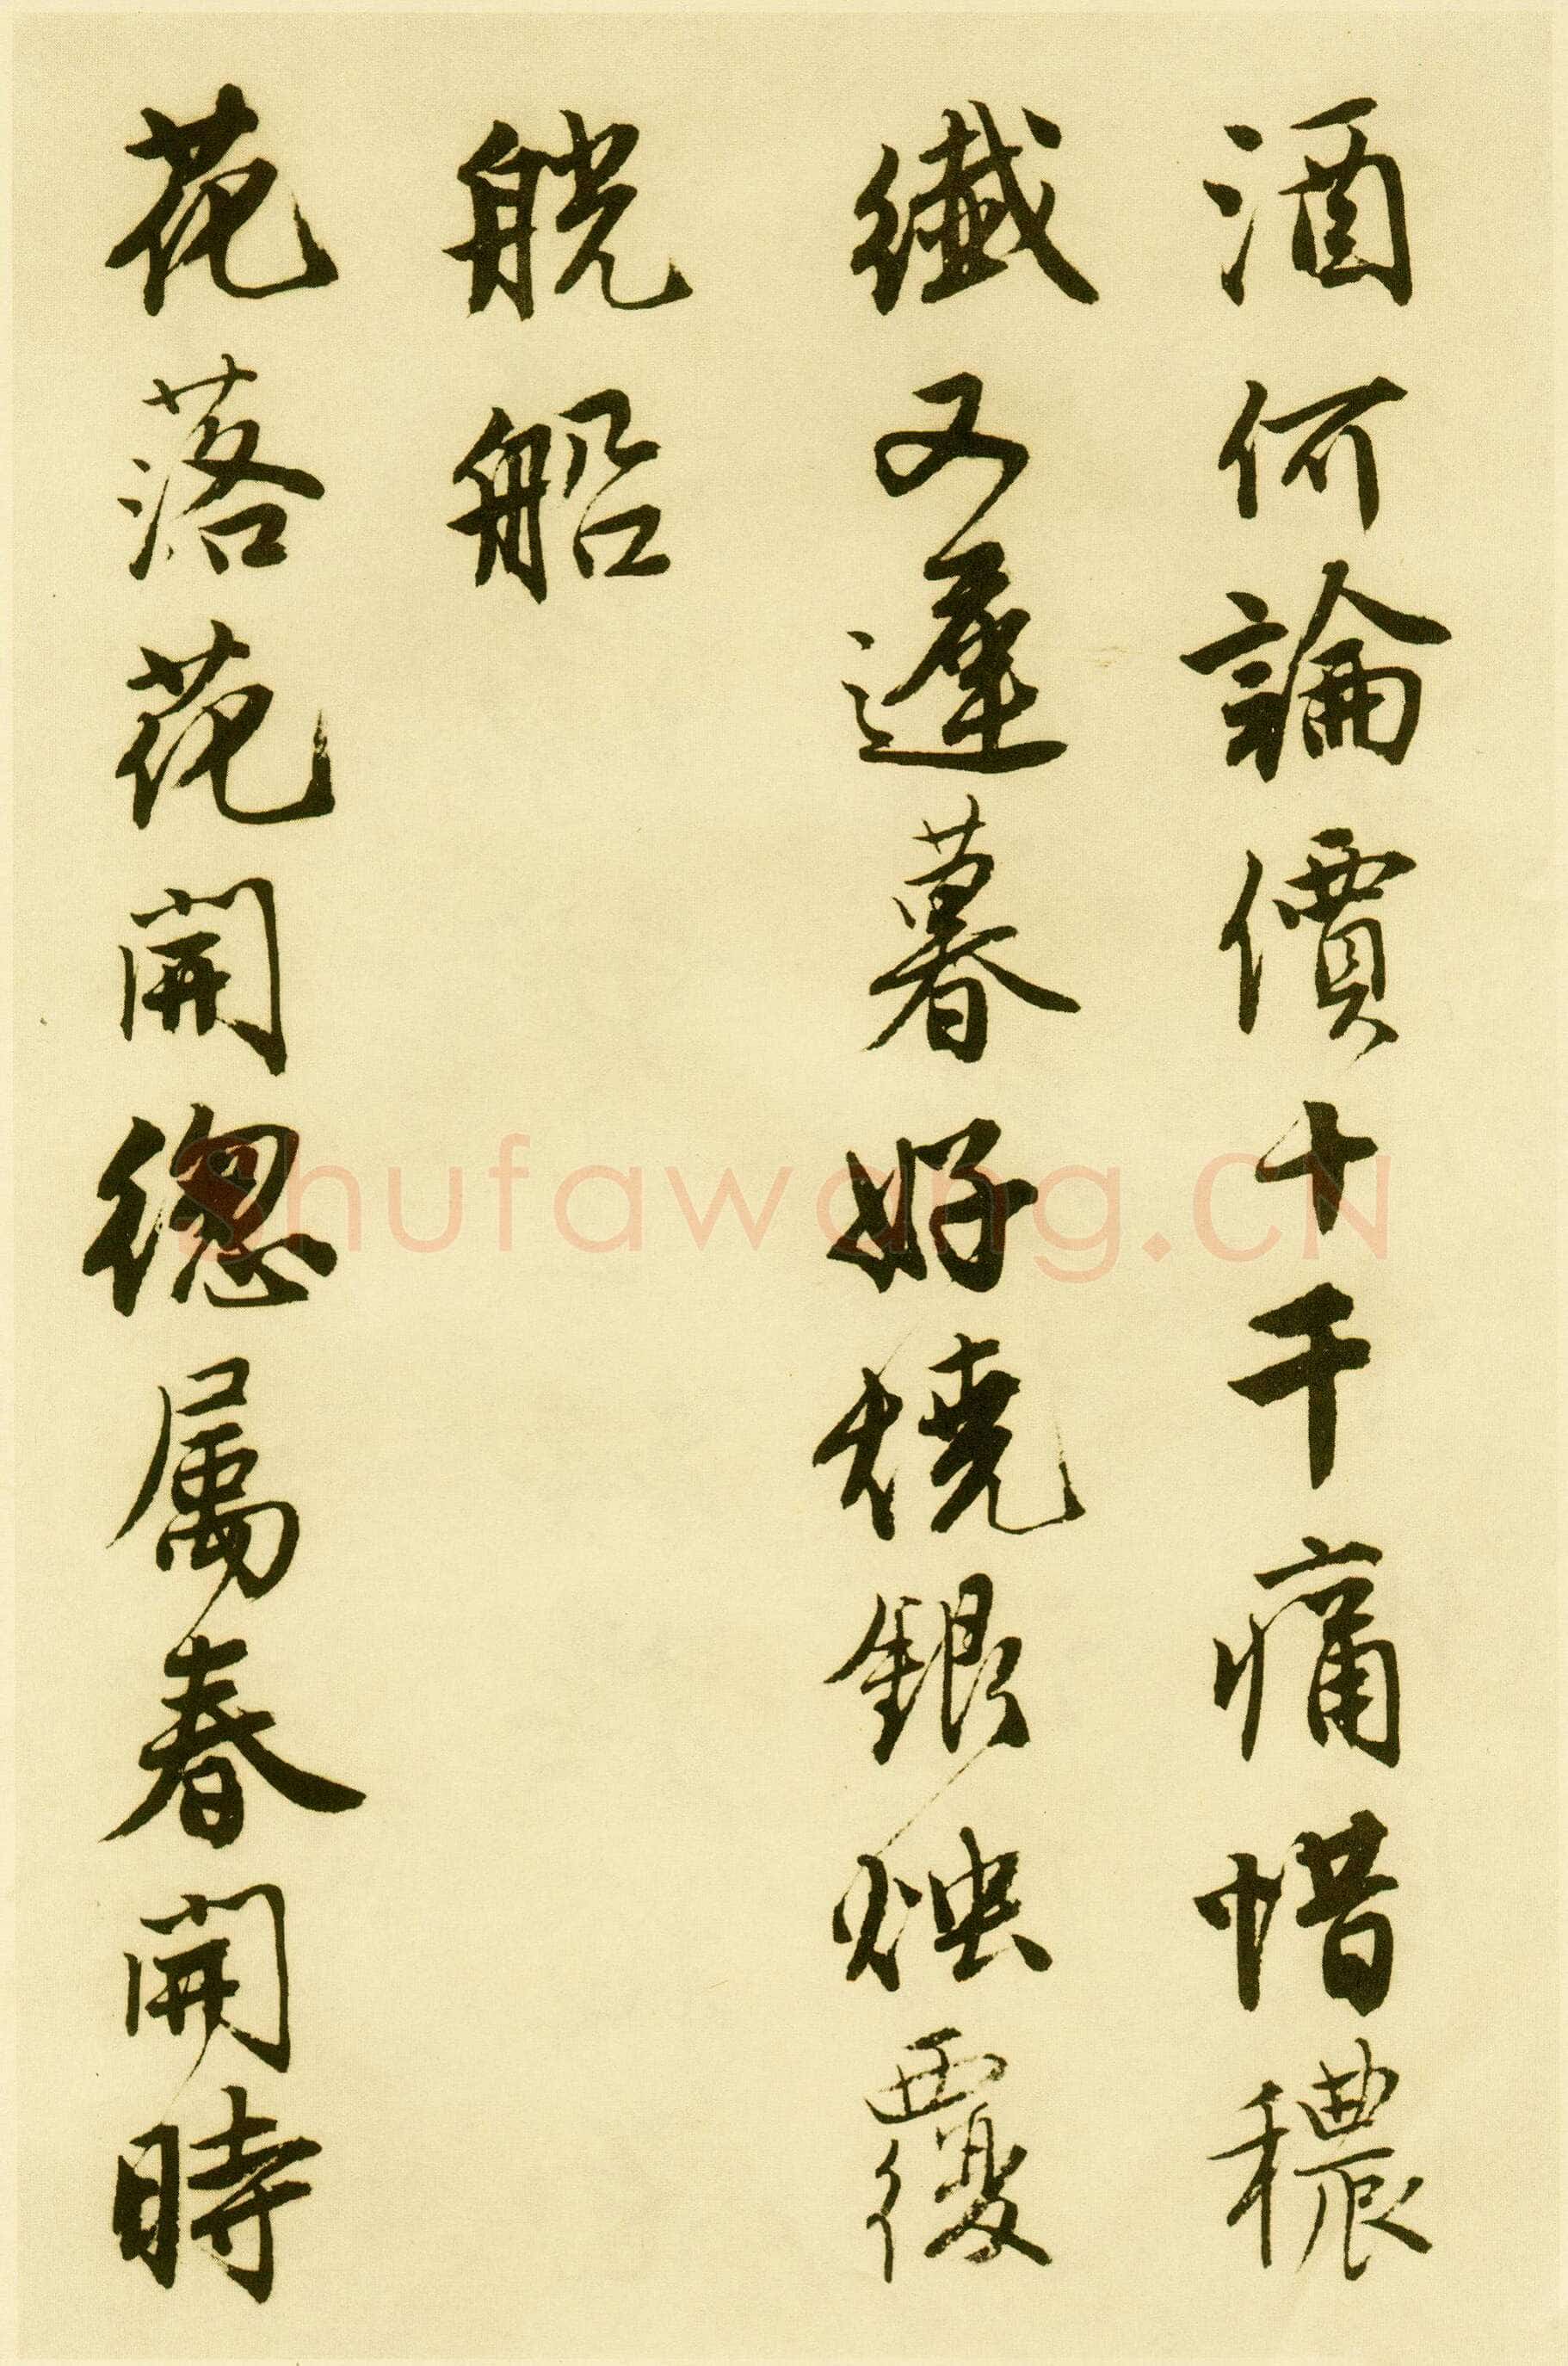 酒何論價十千痛惜穠
纖又遲暮好燒銀燭覆
觥船
花落花開總屬春開時
shufawang.CN